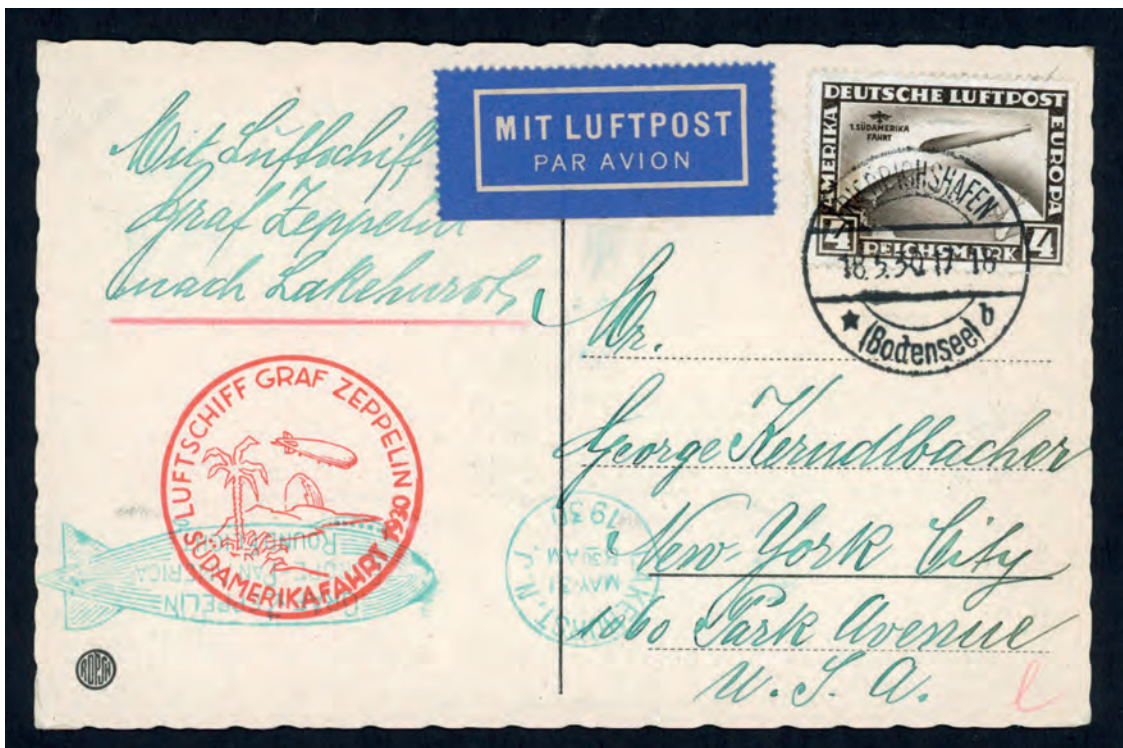 Mit Luftschiff
Graf Zeppelin
nach Lakehurst
MIT LUFTPOST
PAR AVION
DEUTSCHE LUFTPOST
AMERIKA
EUROPA
1. SÜDAMERIKA
FAHRT
4 REICHSMARK 4
FRIEDRICHSHAFEN
18.5.30 17-18
(Bodensee) b
Mr.
George Kerndlbacher
New-York City
1060 Park Avenue
U. S. A.
LUFTSCHIFF GRAF ZEPPELIN 1930
SÜDAMERIKAFAHRT
GRAF ZEPPELIN
EUROPE PAN AMERICA
ROUND FLIGHT
LAKEHURST. N.J.
MAY 31
AM
1930